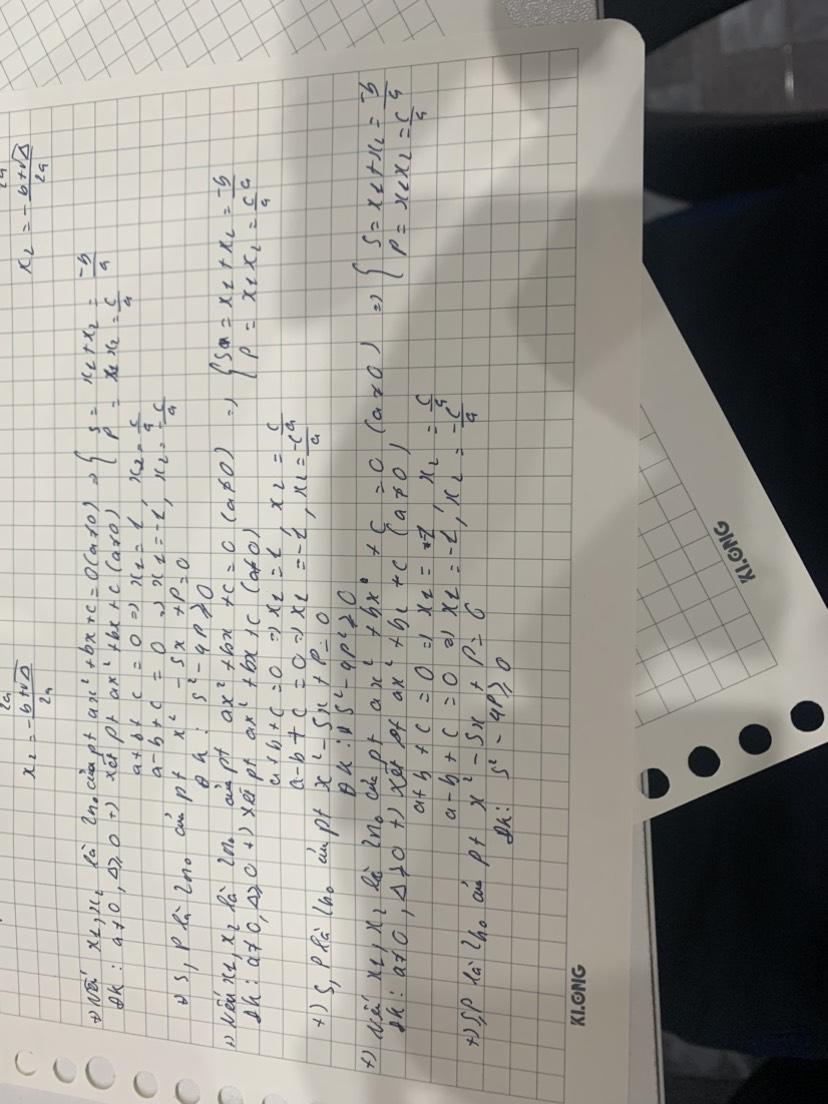 2a 2a
x2 = -b+√Δ / 2a x2 = -b+√Δ / 2a
+) Nếu x1, x2 là 2no của pt ax² + bx + c = 0 (a≠0) => { S = x1 + x2 = -b/a
Đk: a≠0, Δ⩾0 +) xét pt ax² + bx + c (a≠0) P = x1 x2 = c/a
a + b + c = 0 => x1 = 1, x2 = c/a
a - b + c = 0 => x1 = -1, x2 = -c/a
+) S, P là 2no của pt x² - Sx + P = 0
Đk: S² - 4P ⩾ 0
+) Nếu x1, x2 là 2no của pt ax² + bx + c = 0 (a≠0) => { S = x1 + x2 = -b/a
Đk: a≠0, Δ⩾0 +) xét pt ax² + bx + c (a≠0) P = x1 x2 = c/a
a + b + c = 0 => x1 = 1, x2 = c/a
a - b + c = 0 => x1 = -1, x2 = -c/a
+) S, P là 2no của pt x² - Sx + P = 0
Đk: S² - 4P² ⩾ 0
+) Nếu x1, x2 là 2no của pt ax² + bx + c = 0 (a≠0) => { S = x1 + x2 = -b/a
Đk: a≠0, Δ⩾0 +) xét pt ax² + bx + c (a≠0) P = x1 x2 = c/a
a + b + c = 0 => x1 = 1, x2 = c/a
a - b + c = 0 => x1 = -1, x2 = -c/a
+) S, P là 2no của pt x² - Sx + P = 0
Đk: S² - 4P ⩾ 0
KLONG
KLONG